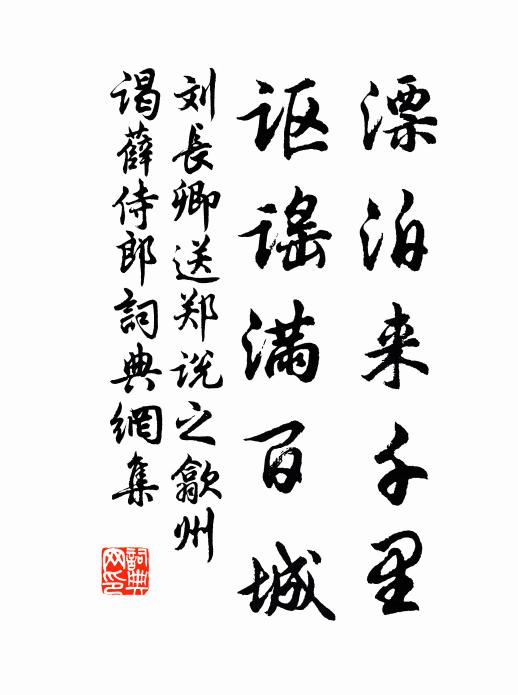 漂泊来千里
讴谣满百城
刘長卿送郑说之歙州
谒薛侍郎詞典網集
詞典网印